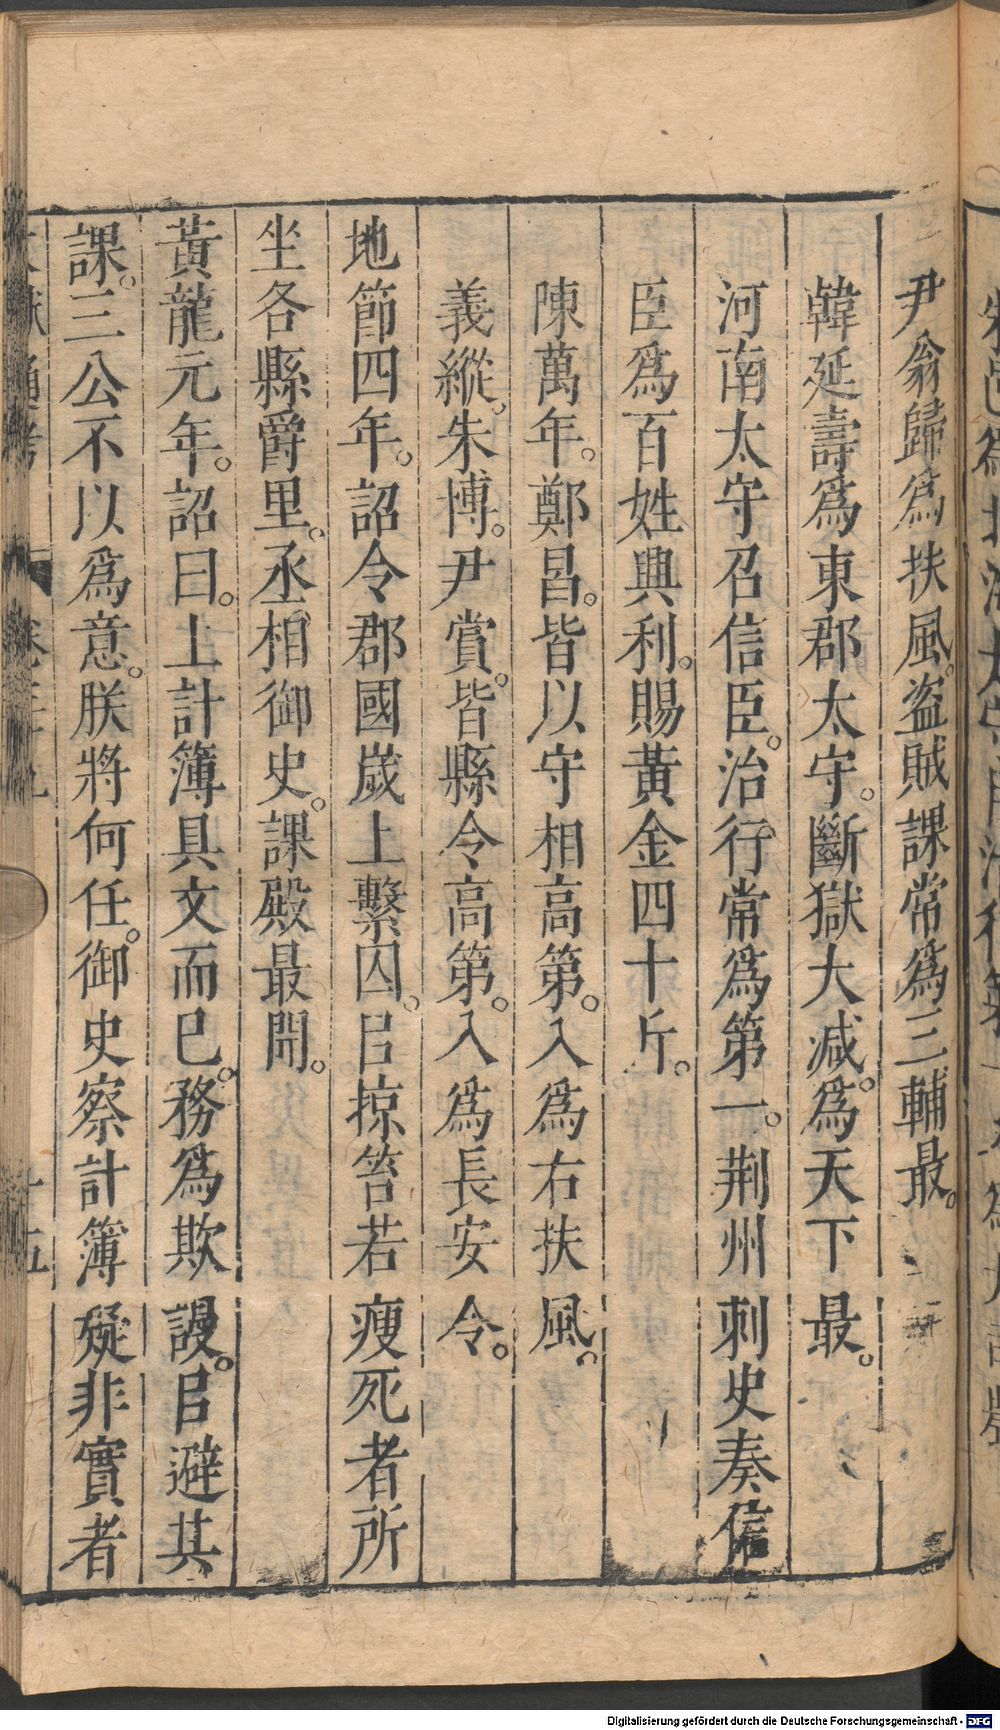 尹翁歸爲扶風。盗賊課常爲三輔最。
韓延壽爲東郡太守。斷獄大减。爲天下最。
河南太守召信臣。治行常爲第一。荆州刺史奏信
臣爲百姓興利。賜黃金四十斤。
陳萬年。鄭昌。皆以守相高第。入爲右扶風。
義縱。朱博。尹賞。皆縣令高第。入爲長安令。
地節四年。詔令郡國歲上繫囚。㠯掠笞若瘦死者所
坐各縣爵里。丞相御史。課殿最聞。
黃龍元年。詔曰。上計簿具文而已。務爲欺謾。㠯避其
課。三公不以爲意。朕將何任。御史察計簿疑非實者
十五
Digitalisierung gefördert durch die Deutsche Forschungsgemeinschaft - DFG